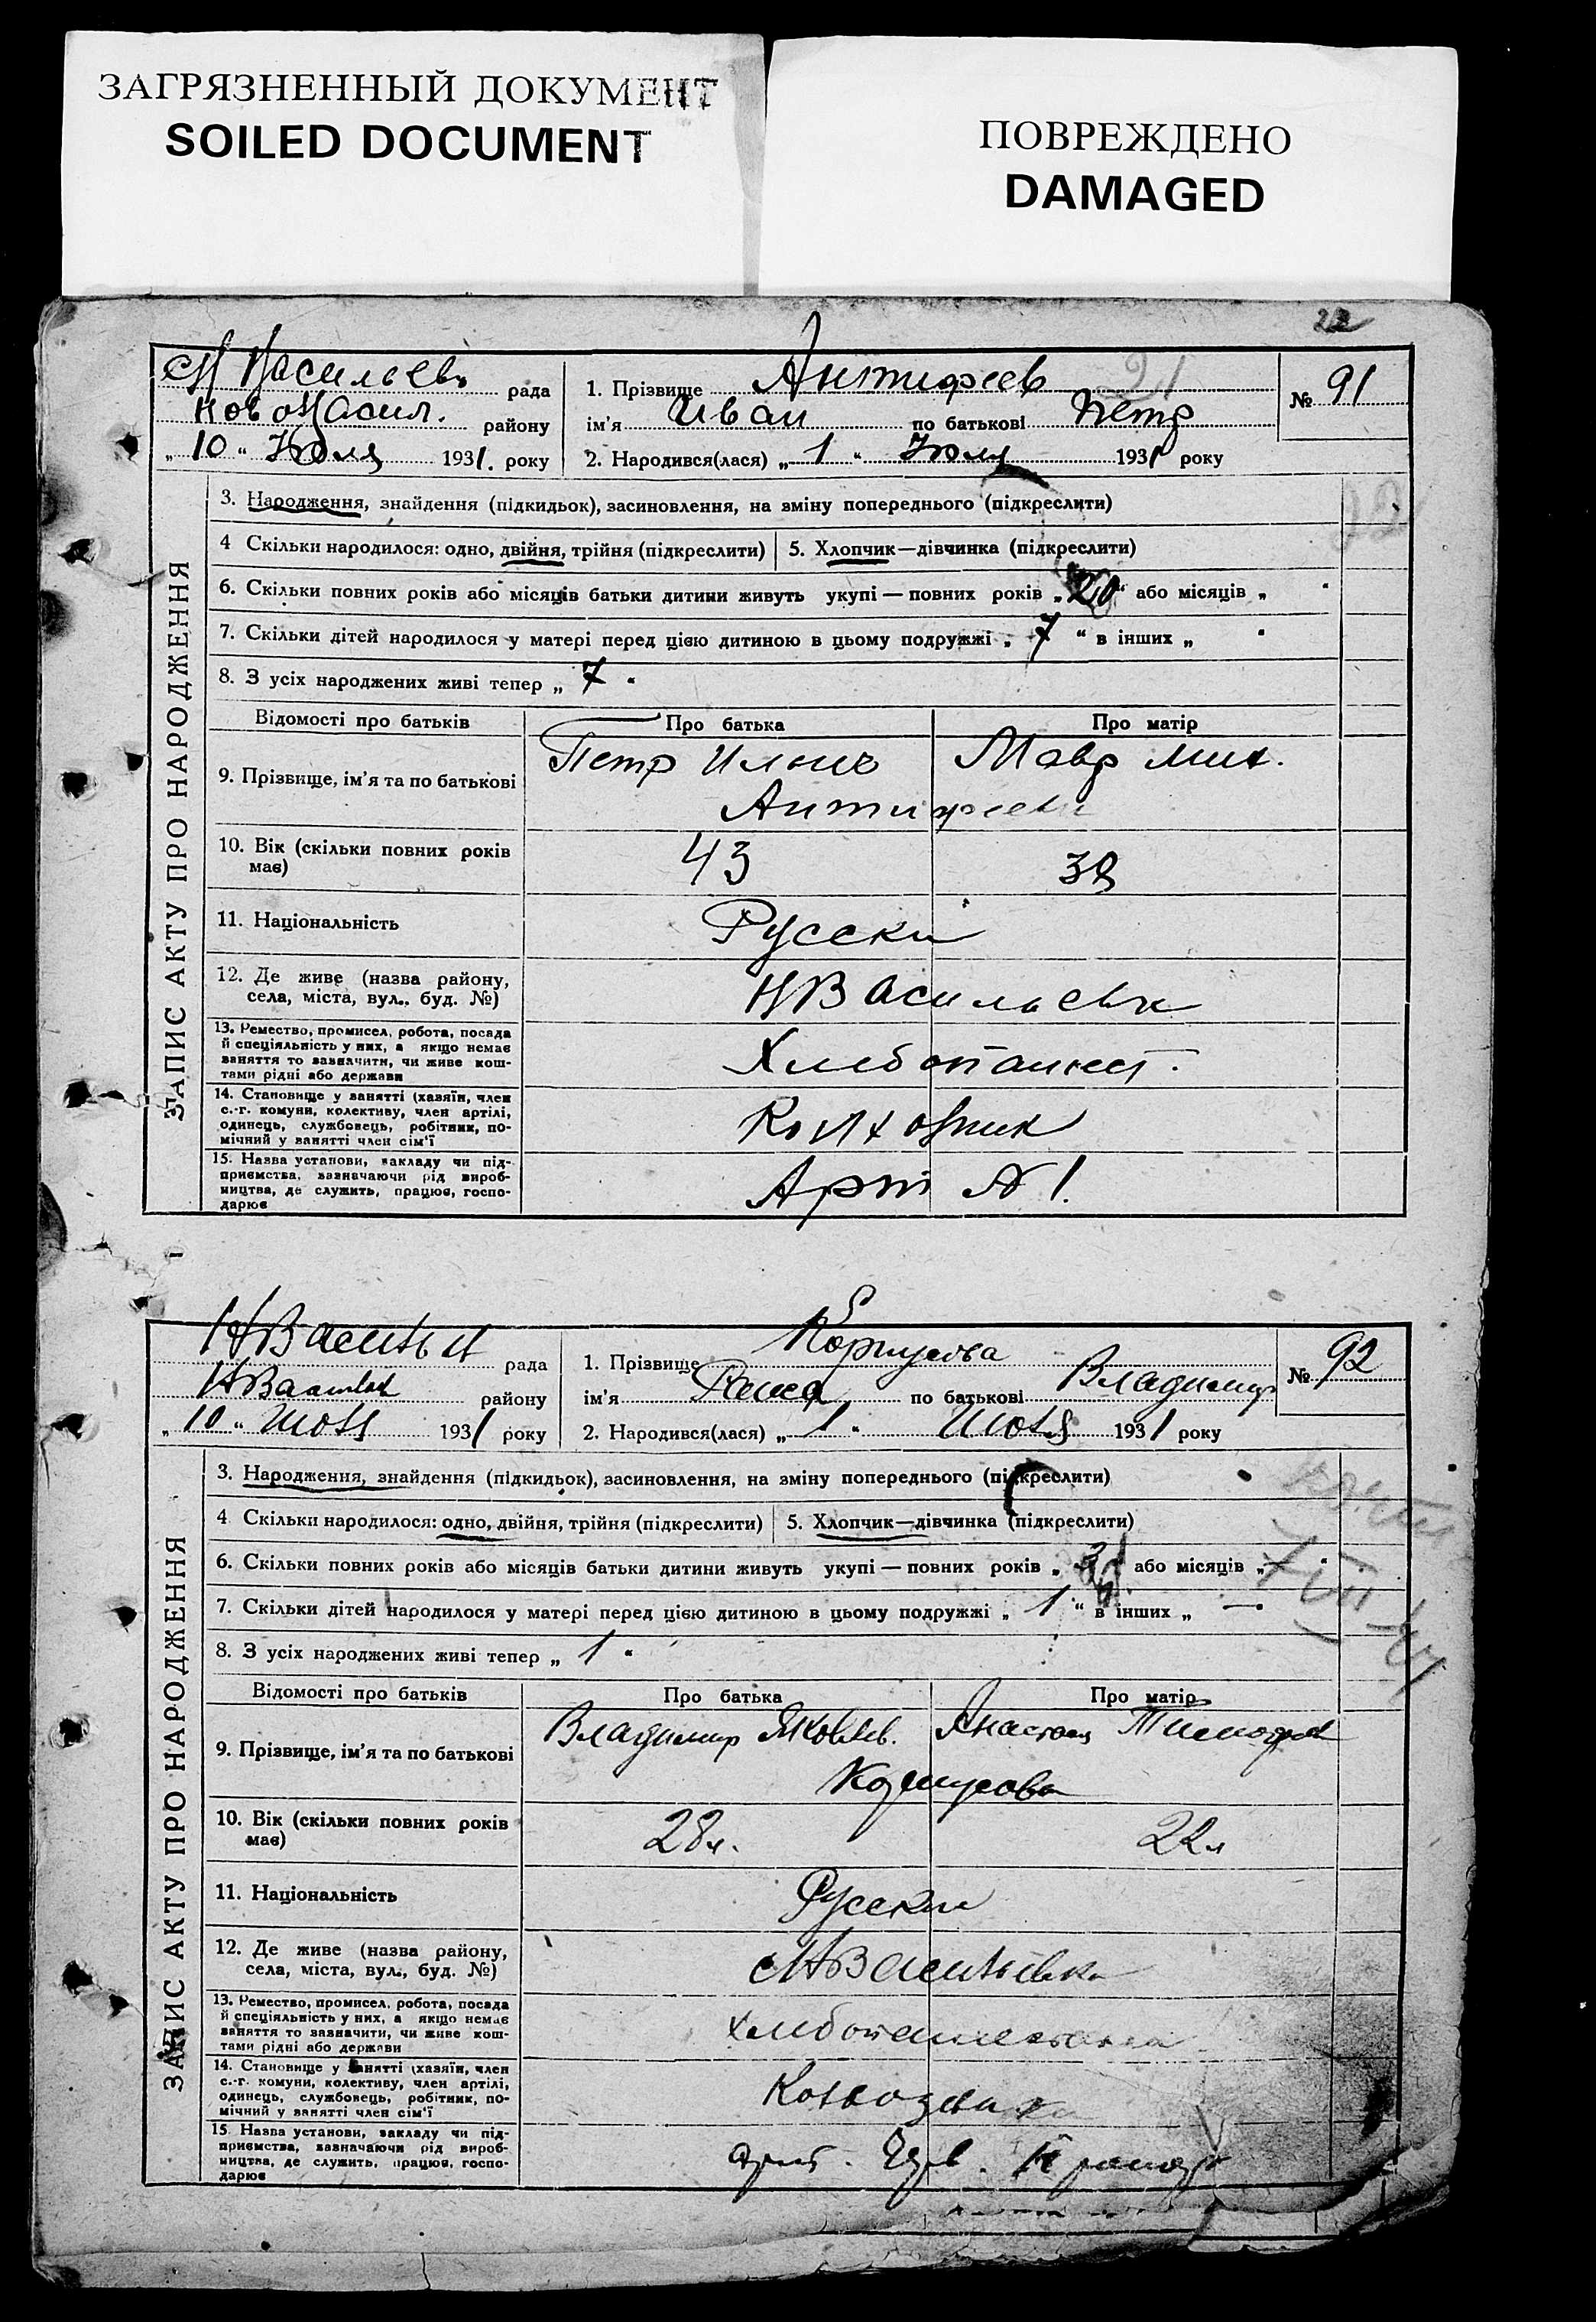 ЗАГРЯЗНЕННЫЙ ДОКУМЕНТ
SOILED DOCUMENT
ПОВРЕЖДЕНО
DAMAGED
22
рада
НовоВасил. району
„ 10 “ Июля 1931. року
1. Прізвище Антифеев
ім'я Иван по батькові Петр
2. Народився(лася) „ 1 “ Июля 1931 року
№ 91
ЗАПИС АКТУ ПРО НАРОДЖЕННЯ
3. Народження, знайдення (підкидьок), засиновлення, на зміну попереднього (підкреслити)
4 Скільки народилося: одно, двійня, трійня (підкреслити) 5. Хлопчик—дівчинка (підкреслити)
6. Скільки повних років або місяців батьки дитини живуть укупі — повних років „ 20 “ або місяців „ “
7. Скільки дітей народилося у матері перед цією дитиною в цьому подружжі „ 7 “ в інших „ “
8. З усіх народжених живі тепер „ 7 “
Відомості про батьків Про батька Про матір
9. Прізвище, ім'я та по батькові Петр Ильич Мавр Мих.
Антифеевы
10. Вік (скільки повних років має) 43 38
11. Національність Русски
12. Де живе (назва району,
села, міста, вул., буд. №) НВасильевк
13. Ремество, промисел, робота, посада
й спеціяльність у них, а якщо немає
заняття то зазначити, чи живе кош-
тами рідні або держави
Хлебопашест.
14. Становище у занятті (хазяїн, член
с.-г. комуни, колективу, член артілі,
одинець, службовець, робітник, по-
мічний у занятті член сім'ї
Колхозник
15. Назва установи, закладу чи під-
приємства, зазначаючи рід вироб-
ництва, де служить, працює, госпо-
дарює
Арт № 1.
рада
району
„ 10 “ Июля 1931 року
1. Прізвище
ім'я по батькові Владимир
2. Народився(лася) „ 1 “ Июля 1931 року
№ 92
ЗАПИС АКТУ ПРО НАРОДЖЕННЯ
3. Народження, знайдення (підкидьок), засиновлення, на зміну попереднього (підкреслити)
4 Скільки народилося: одно, двійня, трійня (підкреслити) 5. Хлопчик—дівчинка (підкреслити)
6. Скільки повних років або місяців батьки дитини живуть укупі — повних років „ або місяців „ — “
7. Скільки дітей народилося у матері перед цією дитиною в цьому подружжі „ 1 “ в інших „ — “
8. З усіх народжених живі тепер „ 1 “
Відомості про батьків Про батька Про матір
9. Прізвище, ім'я та по батькові Владимир Яковлев. Анастасия Тимофеев
10. Вік (скільки повних років має) 28 л. 22 л
11. Національність Русския
12. Де живе (назва району,
села, міста, вул., буд. №) НВасильевка
13. Ремество, промисел, робота, посада
й спеціяльність у них, а якщо немає
заняття то зазначити, чи живе кош-
тами рідні або держави
14. Становище у занятті (хазяїн, член
с.-г. комуни, колективу, член артілі,
одинець, службовець, робітник, по-
мічний у занятті член сім'ї
15. Назва установи, закладу чи під-
приємства, зазначаючи рід вироб-
ництва, де служить, працює, госпо-
дарює